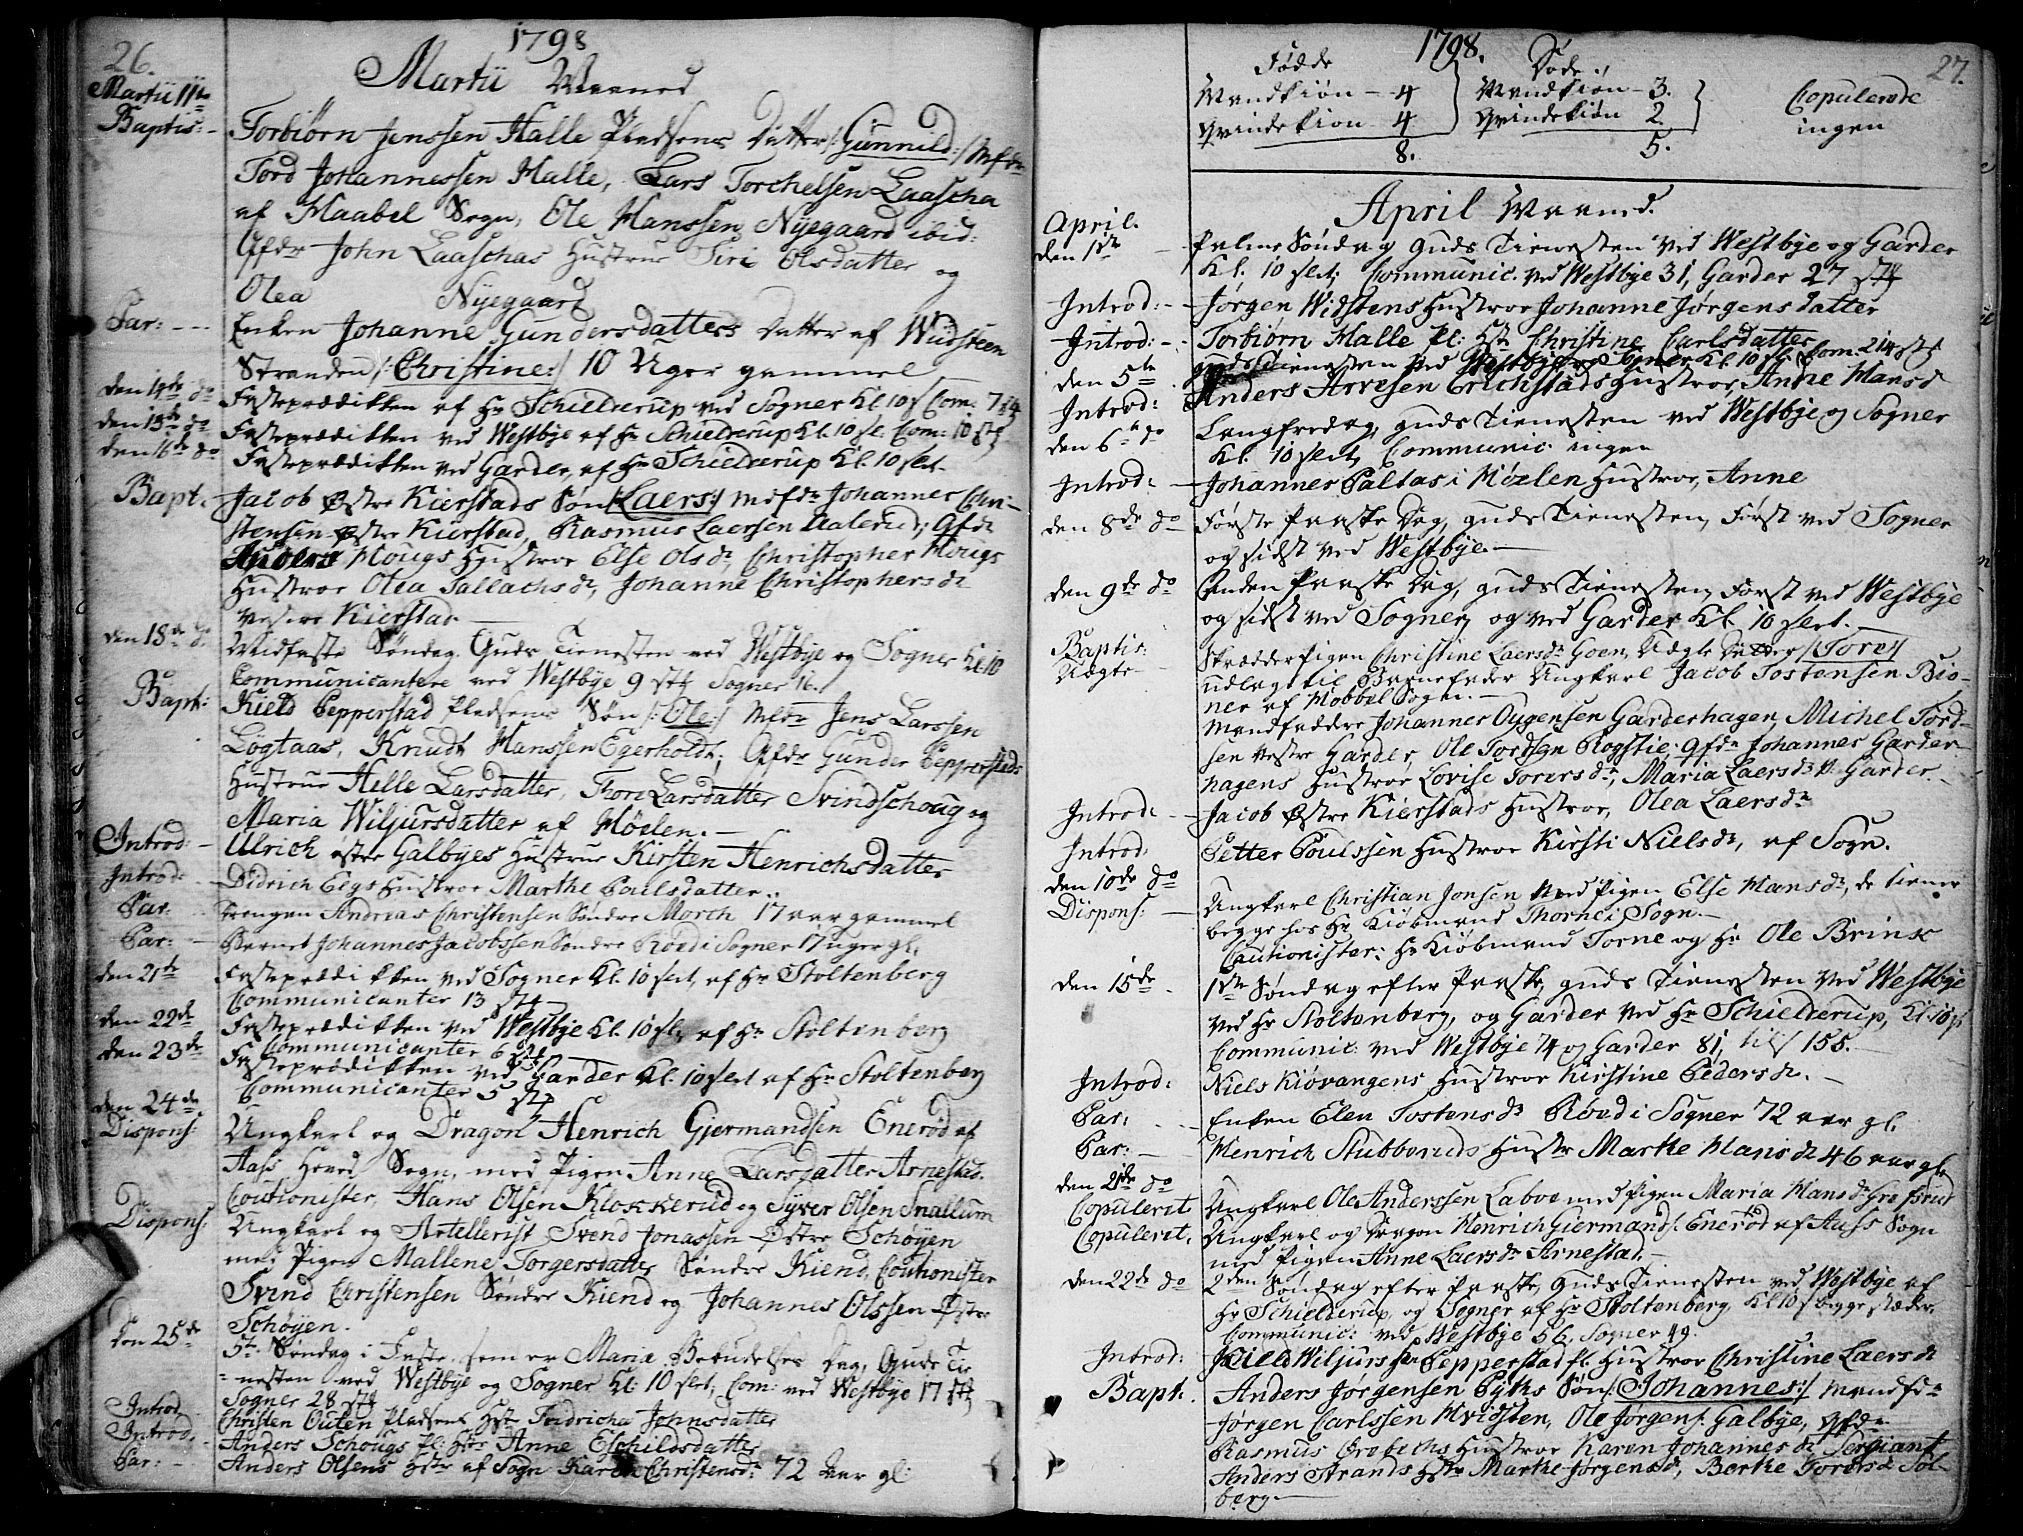 26. 1798
Martii Maaned
Martii 11te
Baptis: Torbiørn Jenssen Halle Pladsens Datter /:Gunnild:/ Mfdr
Tord Johannessen Halle, Lars Torchelsen Laascha
af Haabel Sogn, Ole Hanssen Nyegaard ibid:
Qfdr John Laaschas Hustrue Siri Olsdatter og
Olea Nyegaard
Par: Enken Johanne Gundersdatters Datter af Widsteen
Stranden /:Christine:/ 10 Uger gammel
den 14de do Fasteprædikken af Hr Schielderup ved Sogner Kl. 10 Com. 7
den 15de do Fasteprædikken ved Westbye af Hr Schielderup Kl. 10 sl. Com: 10 stk
den 16de do Fasteprædikken ved Garder af Hr Schielderup Kl. 10 slet.
Bapt. Jacob Østre Kierstads Søn /:Laers:/ Mdfdr Johannes Chri-
stensen Østre Kierstad, Rasmus Laersen, Qfdr
Anders Hougs Hustroe Else Olsdr, Christopher Hougs
Hustroe Olea Tallachsdr, Johanne Christophersdr
Kierstad.
den 18de do Midfaste Søndag Guds Tienesten ved Westbye og Sogner Kl. 10
Communicantere ved Westbye 9 stk Sogner 16.
Bapt: Kield Pepperstad Pladsens Søn /:Ole:/ Mfdr Jens Larssen
Løgtaas, Knudt Hanssen Egerholdt, Qfdr Gunder Pepperstads
Hustrue Helle Larsdatter, Thore Larsdatter Svindschoug og
Maria Wiljursdatter af Hølen.
Introd: Ulrich østre Galbyes Hustrue Kirsten Henrichsdatter
Introd: Didrich Eegs Hustroe Marthe Poulsdatter.
Par: Drengen Andreas Christensen Søndre Morch 17 aar gammel
Par: Barnet Johannes Jacobssen Søndre Røed i Sogner 17 uger gl.
den 21de Fasteprædikken ved Sogner Kl. 10 slet af Hr Stoltenberg
Communicanter 13 stk
den 22de Fasteprædikken ved Westbye Kl. 10 sl. af Hr Stoltenberg
Communicanter 6 stk
den 23de Fasteprædikken ved Garder Kl. 10 slet af Hr Stoltenberg
Communicanter 5 stk
den 24de
Dispons: Ungkarl og Dragon Henrich Gjermandsen Enerød af
Aass Hoved Sogn, med Pigen Anne Larsdatter Arnestad.
Coutionister, Hans Olsen Klokkerud og Syver Olsen Snallum
Dispons: Ungkarl og Artellerist Svend Jonassen Østre Schøyen
med Pigen Mallene Torgersdatter Søndre Kiend, Coutionister
Svend Christensen Søndre Kiend og Johannes Olssen Østre
Schøyen.
den 25de 5te Søndag i Faste, som er Mariæ Bebudelses Dag, Guds Tie-
nesten ved Westbye og Sogner Kl: 10 slet, Com: ved Westbye 17 stk
Sogner 28 stk
Introd. Christen Outen Pladsens Hstr Fredricha Johnsdatter
Introd. Anders Schougs Pl: Hstr Anne Eschildsdatter
Par: Anders Olsens Hstr af Sogn Karen Christensdr 72 Aar gl:
1798. 27.
Fødde Døde
Mandkiøn - 4 Mandkiøn - 3. Copulerede
Qvindekiøn 4 Qvindekiøn 2 ingen
8. 5.
April Maaned.
April.
den 1ste Palme Søndag Guds Tienesten ved Westbye og Garder
Kl. 10 slet, Communic. ved Westbye 31, Garder 27 stk
Introd: Jørgen Widstens Hustroe Johanne Jørgens datter
Introd: Torbiørn Halle Pl: Hstr Christine Carlsdatter
den 5te Guds Tienesten ved Westbye og Sogner Kl. 10 sl. Com. 214 stk
Introd: Anders Arvesen Erichstads Hustroe, Anne Hansdr
den 6te do Langfredag, Guds Tienesten ved Westbye og Sogner
Kl. 10 slet, Communic. ingen
Introd: Johannes Paltas i Hølen Hustroe, Anne
den 8de do Første Paaske Dag, Guds Tienesten, Først ved Sogner
og sidst ved Westbye.
den 9de do Anden Paaske Dag, Guds Tienesten, Først ved Westbye
og sidst ved Sogner, og ved Garder Kl. 10 slet.
Baptis: Skrædder Pigen Christine Laersdr Goen, Uægte Datter /:Tore:/
Uægte udlagt til Barnefader Ungkarl Jacob Tostensen Biø-
ner af Hobbel Sogn.
Mandfaddere Johannes Oygensen Garderhagen, Michel Tord-
sen vestre Garder, Ole Tordsen Rogstie. Qfdr Johannes Garder-
hagens Hustroe Lovise Torersdr, Maria Laersdr V. Garder.
Introd: Jacob Østre Kierstads Hustroe, Olea Laersdr
Introd: Petter Poulssen Hustroe Kirsti Nielsdr, af Sogn.
den 10de do
Dispons: Ungkarl Christian Jonsen Med Pigen Else Hansdr, de tiener
begge hos Hr Kiøbmand Thorne i Sogn.
Cautionister: Hr Kiøbmand Torne og Hr Ole Brink
den 15de 1ste Søndag efter Paaske, Guds Tienesten ved Westbye
ved Hr Stoltenberg, og Garder ved Hr Schielderup, Kl. 10 sl
Communic: ved Westbye 74 og Garder 81, tils 155.
Introd: Niels Kiøvangens Hustroe Kirstine Pedersdr.
Par: Enken Elen Tostensdr Røed i Sogner 72 aar gl.
Par: Henrich Stubberuds Hustr Marthe Hansdr 46 aar gl.
den 21de do
Copuleret Ungkarl Ole Anderssen Laboe med Pigen Maria Hansdr
Copuleret. Ungkarl og Dragon Henrich Giermands. Enerød af Aass Sogn
med Pigen Anne Laersdr Arnestad.
den 22de do 2den Søndag efter Paaske, Guds Tienesten ved Westbye af
Hr Schielderup, og Sogner af Hr Stoltenberg, Kl. 10 s. begge stæder.
Communic: ved Westbye 56, Sogner 49.
Introd: Kield Wiljurssen Pepperstad pl. Hustroe Christine Laersdr
Bapt. Anders Jørgensen Pyths Søn /:Johannes:/ Mandfdr
Jørgen Carlssen Hvidsten, Ole Jørgens: Galbye, Qfdr
Rasmus Grobechs Hustroe Karen Johannesdr Sergiant
Anders Strands Hstr Marthe Jørgensdr, Berthe Torersdr Sol-
berg.